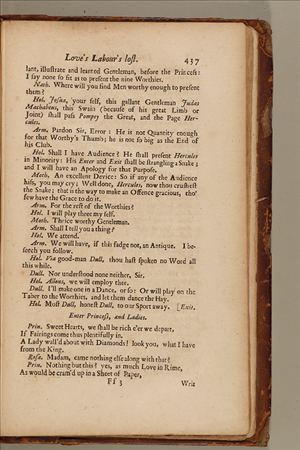 Love's Labour's lost. 437
lant, illustrate and learned Gentleman, before the Princess:
I say none so fit as to present the nine Worthies.
Nath. Where will you find Men worthy enough to present
them?
Hol. Joshua, your self, this gallant Gentleman Judas
Machabeus, this Swain (because of his great Limb or
Joint) shall pass Pompey the Great, and the Page Her-
cules.
Arm. Pardon Sir, Error: He is not Quantity enough
for that Worthy's Thumb; he is not so big as the End of
his Club.
Hol. Shall I have Audience? He shall present Hercules
in Minority: His Enter and Exit shall be strangling a Snake;
and I will have an Apology for that Purpose.
Moth. An excellent Device: So if any of the Audience
hiss, you may cry; Well done, Hercules, now thou crushest
the Snake; that is the way to make an Offence gracious, tho'
few have the Grace to do it.
Arm. For the rest of the Worthies?
Hol. I will play three my self.
Moth. Thrice worthy Gentleman.
Arm. Shall I tell you a thing?
Hol. We attend.
Arm. We will have, if this fadge not, an Antique. I be-
seech you follow.
Hol. Via good-man Dull, thou hast spoken no Word all
this while.
Dull. Nor understood none neither, Sir.
Hol. Allons, we will employ thee.
Dull. I'll make one in a Dance, or so: Or will play on the
Taber to the Worthies, and let them dance the Hay.
Hol. Most Dull, honest Dull, to our Sport away. [Exit.
Enter Princess, and Ladies.
Prin. Sweet Hearts, we shall be rich e'er we depart,
If Fairings come thus plentifully in.
A Lady wall'd about with Diamonds! look you, what I have
from the King.
Rosa. Madam, came nothing else along with that?
Prin. Nothing but this? yes, as much Love in Rime,
As would be cram'd up in a Sheet of Paper,
Ff 3 Writ